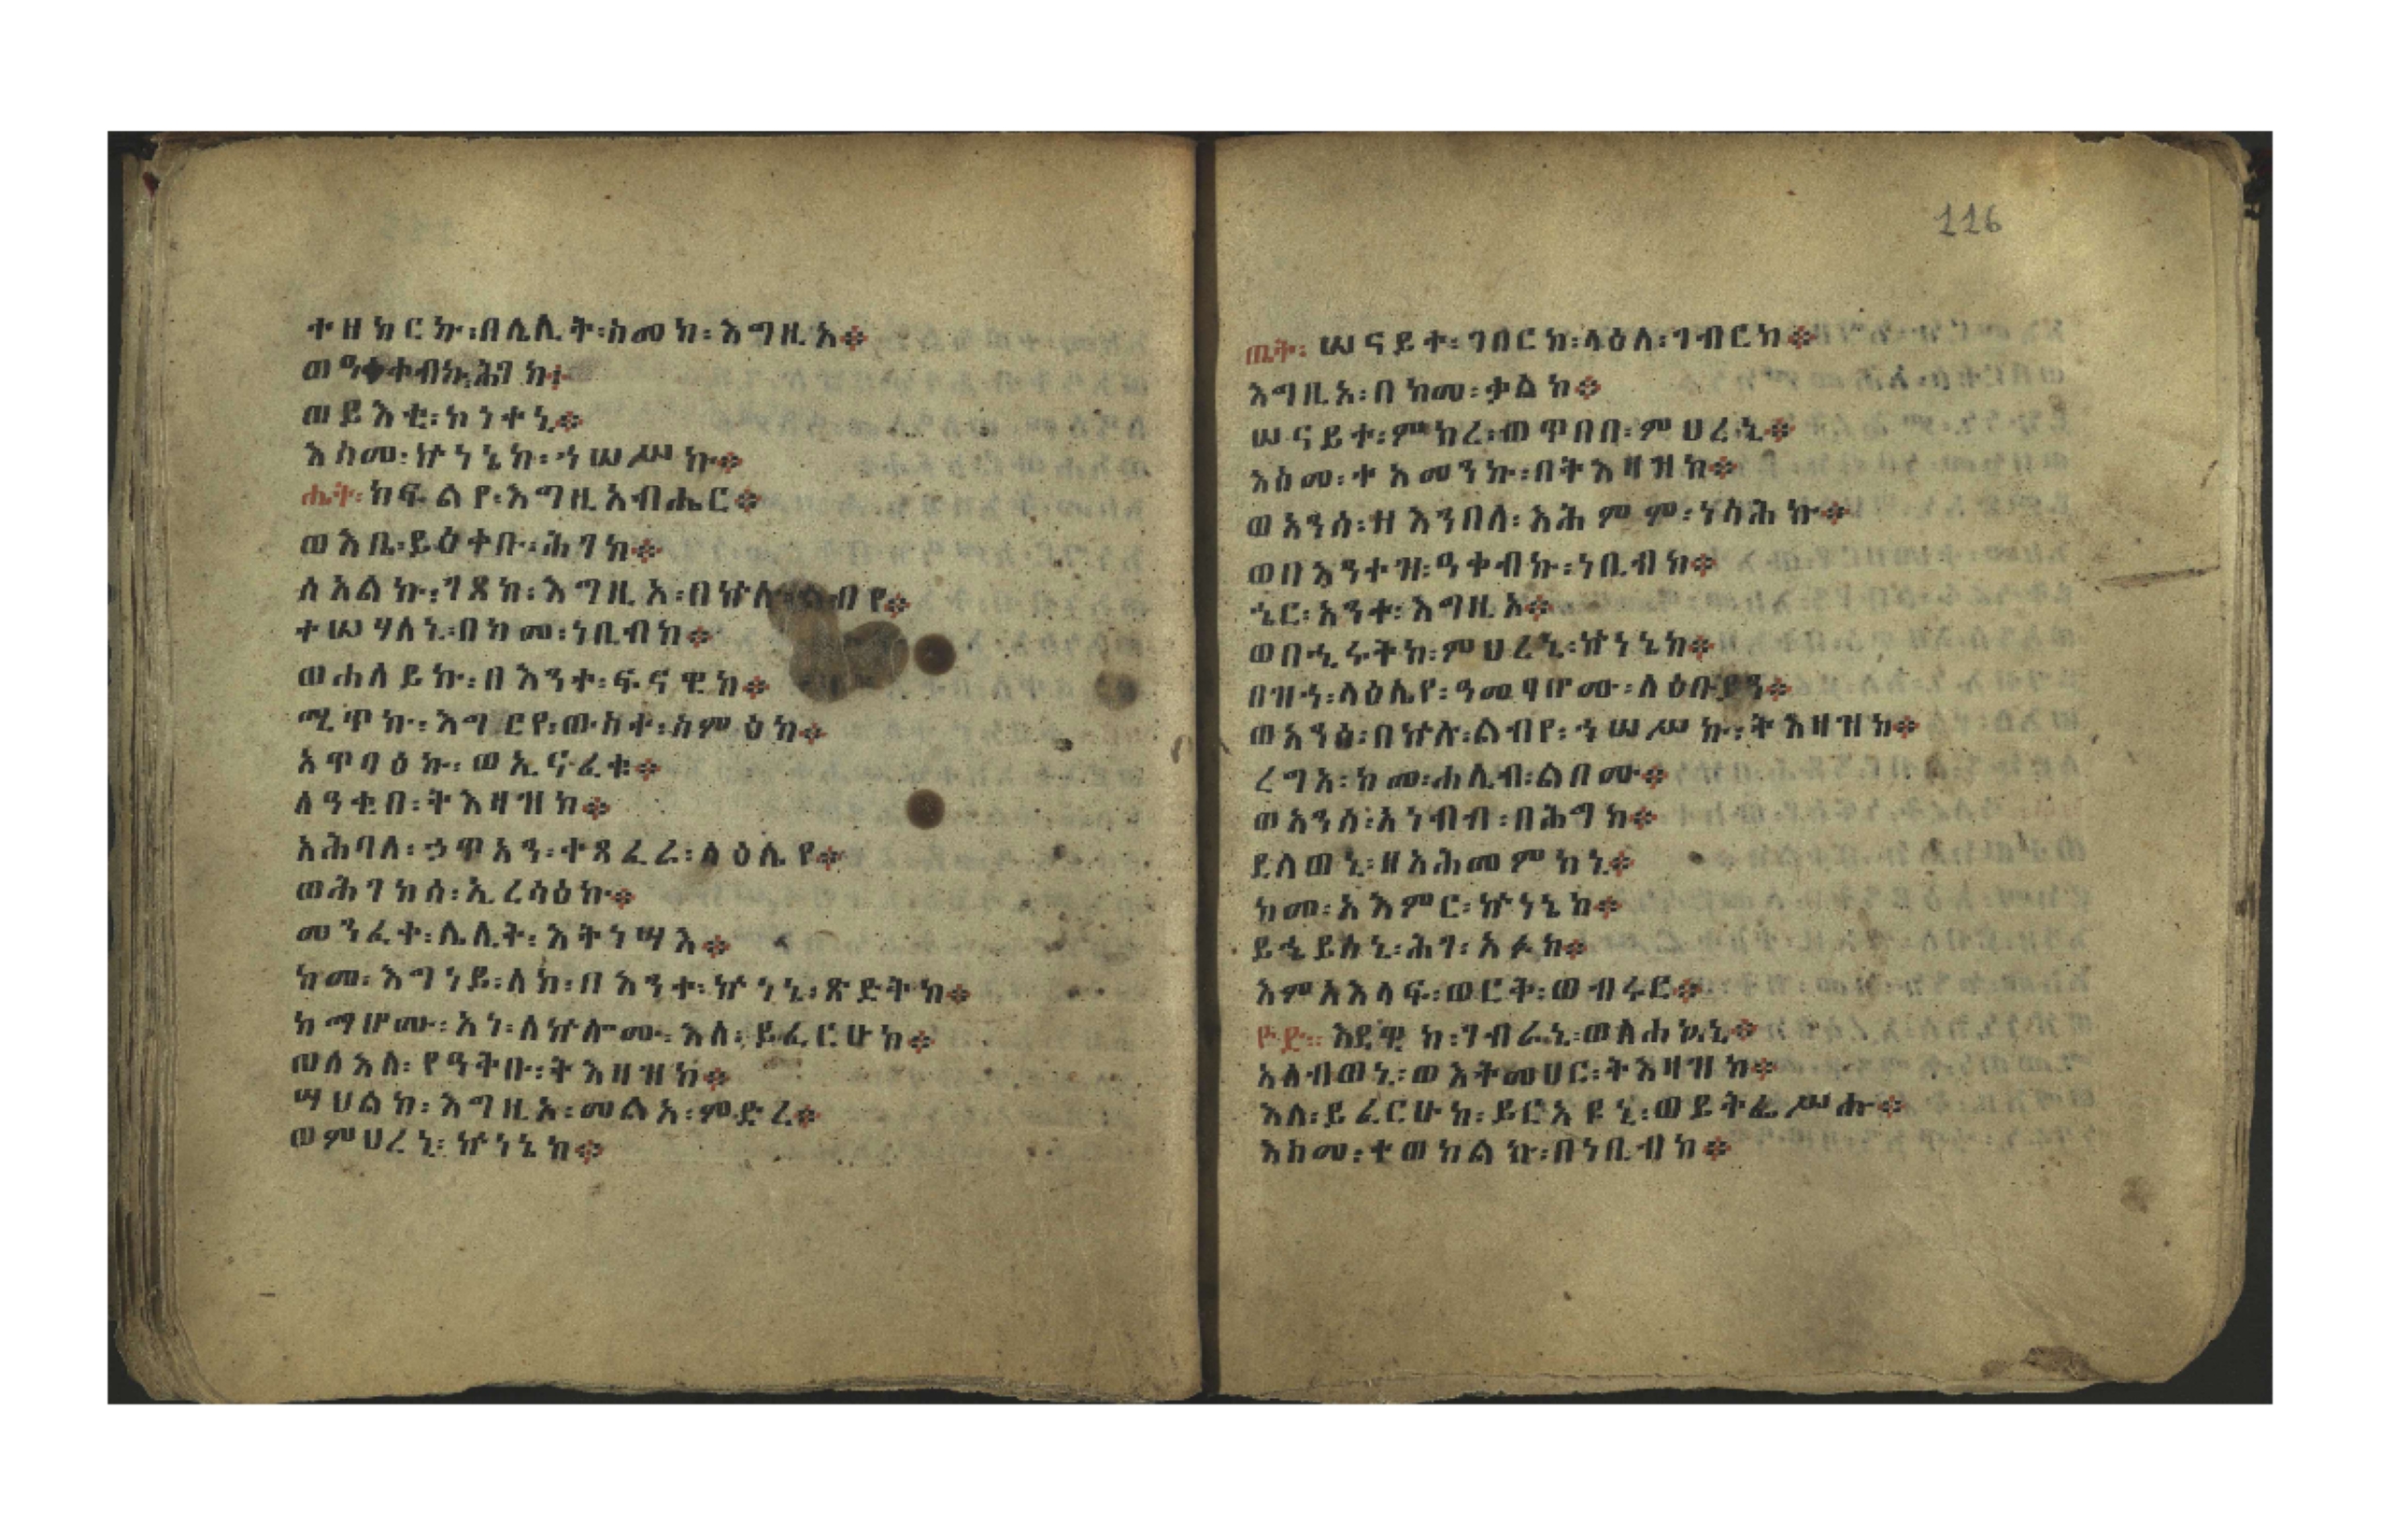 ተዘከርኩ፡በሌሊት፡ስመከ፡እግዚአ።
ወዓቀብኩ፡ሕገከ።
ወይእቲ፡ኮነተኒ።
እስመ፡ኵነኔከ፡ኀሠሥኩ።
ሔት፡ክፍልየ፡እግዚአብሔር።
ወእቤ፡ይዕቀቡ፡ሕገከ።
ሰአልኩ፡ገጸከ፡እግዚአ፡በኵሉ፡ልብየ።
ተሠሃለኒ፡በከመ፡ነቢብከ።
ወሐለይኩ፡በእንተ፡ፍናዊከ።
ሚጥኩ፡እግርየ፡ውስተ፡ስምዕከ።
አጥባዕኩ፡ወኢናፈቁ።
ለዓቂበ፡ትእዛዝከ።
አሕባለ፡ኃጥአን፡ተጸፈረ፡ላዕሌየ።
ወሕገከሰ፡ኢረሳዕኩ።
መንፈተ፡ሌሊት፡እትነሣእ።
ከመ፡እግነይ፡ለከ፡በእንተ፡ኵነኔ፡ጽድቅከ።
ከማሆሙ፡አነ፡ለኵሎሙ፡እለ፡ይፈርሁከ።
ወለእለ፡የዓቅቡ፡ትእዛዝከ።
ሣህልከ፡እግዚአ፡መልአ፡ምድረ።
ወምህረኒ፡ኵነኔከ።
116
ጤት፡ሠናይተ፡ገበርከ፡ላዕለ፡ገብርከ።
እግዚአ፡በከመ፡ቃልከ።
ሠናይተ፡ምክረ፡ወጥበበ፡ምህረኒ።
እስመ፡ተአመንኩ፡በትእዛዝከ።
ወአንሰ፡ዘእንበለ፡እሕምም፡ነሳሕኩ።
ወበእንተዝ፡ዓቀብኩ፡ነቢብከ።
ኄር፡አንተ፡እግዚአ።
ወበኂሩትከ፡ምህረኒ፡ኵነኔከ።
በዝኀ፡ላዕሌየ፡ዓመፃሆሙ፡ለዕቡያን።
ወአንሰ፡በኵሉ፡ልብየ፡ኀሠሥኩ፡ትእዛዝከ።
ረግአ፡ከመ፡ሐሊብ፡ልቦሙ።
ወአንሰ፡አነብብ፡በሕግከ።
ደለወኒ፡ዘአሕመምከኒ።
ከመ፡አእምር፡ኵነኔከ።
ይኄይሰኒ፡ሕገ፡አፉከ።
እምአእላፍ፡ወርቅ፡ወብሩር።
ዮድ፡እደዊከ፡ገብራኒ፡ወለሐኳኒ።
አለብወኒ፡ወእትመሀር፡ትእዛዝከ።
እለ፡ይፈርሁከ፡ይርአዩኒ፡ወይትፌሥሑ።
እስመ፡ተወከልኩ፡በነቢብከ።